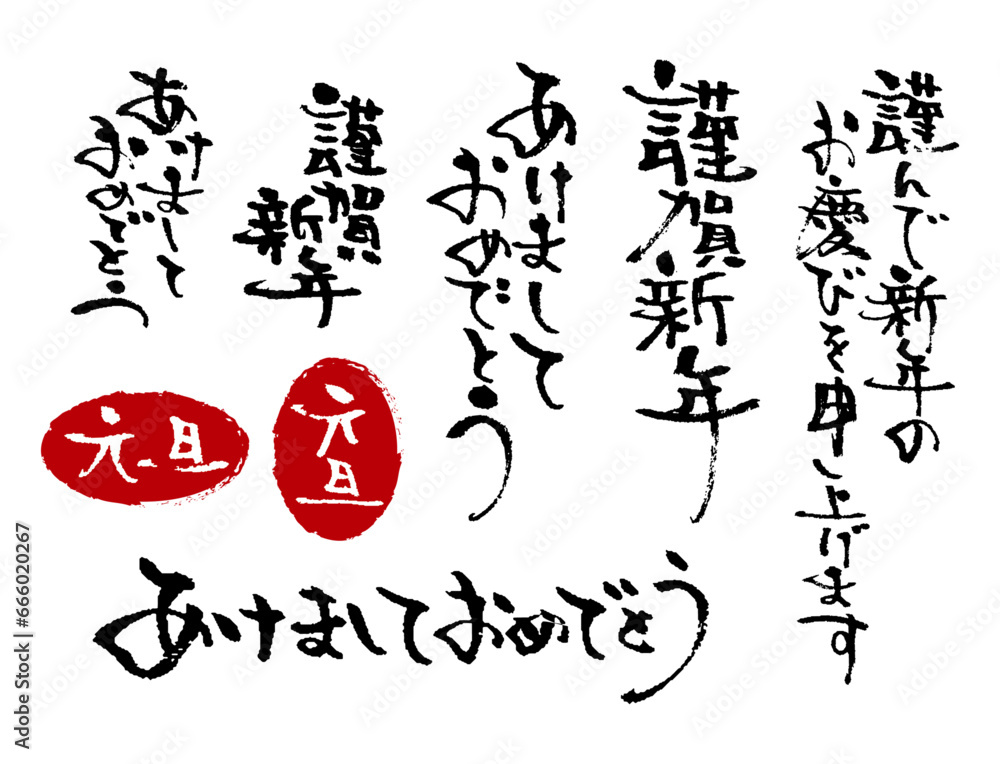 謹んで新年の
お慶びを申し上げます
謹賀新年
あけまして
おめでとう
謹賀
新年
あけまして
おめでとう
元旦
元旦
あけましておめでとう
Adobe Stock | #666020267